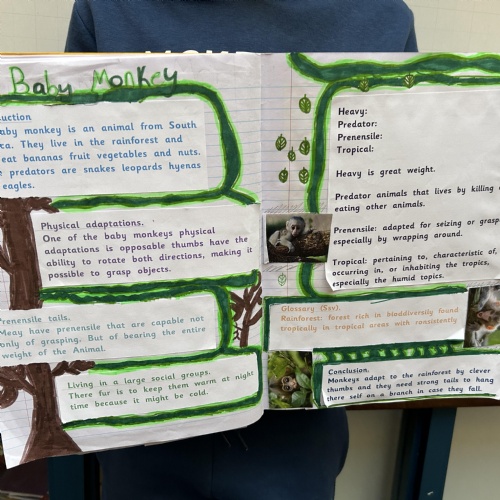 Baby Monkey
uction
aby monkey is an animal from South
ca. They live in the rainforest and
eat bananas fruit vegetables and nuts.
predators are snakes leopards hyenas
eagles.
Physical adaptations.
One of the baby monkeys physical
adaptations is opposable thumbs have the
ability to rotate both directions, making it
possible to grasp objects.
Prenensile tails.
Meay have prenensile that are capable not
only of grasping. But of bearing the entire
weight of the Animal.
Living in a large social groups.
There fur is to keep them warm at night
time because it might be cold.
Heavy:
Predator:
Prenensile:
Tropical:
Heavy is great weight.
Predator animals that lives by killing
eating other animals.
Prenensile: adapted for seizing or grasp
especially by wrapping around.
Tropical: pertaining to, characteristic of,
occurring in, or inhabiting the tropics,
especially the humid topics.
Glossary (Sev).
Rainforest: forest rich in bioddiversily found
tropically in tropical areas with consistently
Conclusion.
Monkeys adapt to the rainforest by clever
thumbs and they need strong tails to hang
there self on a branch in case they fall.